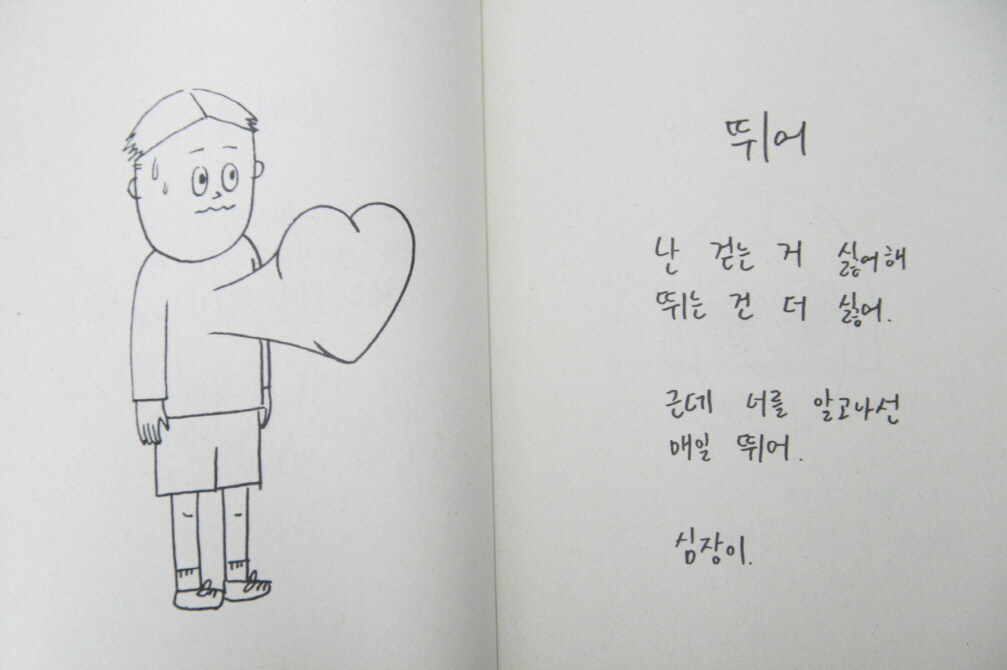 뛰어
난 걷는 거 싫어해
뛰는 건 더 싫어.
근데 너를 알고나선
매일 뛰어.
심장이.